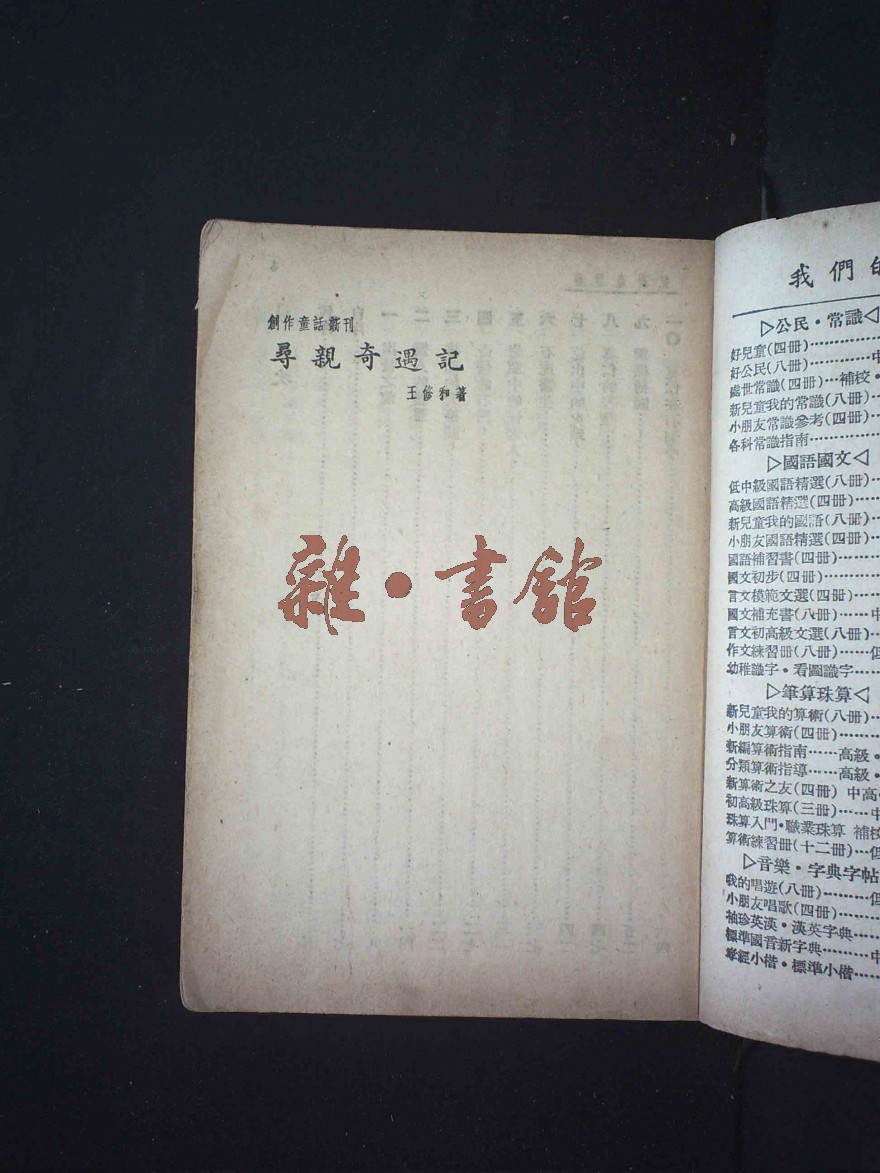 創作童話叢刊
尋親奇遇記
王修和著
雜·書館
我們的
▷公民·常識◁
好兒童(四冊)…………
好公民(八冊)…………中
處世常識(四冊)…補校·
新兒童我的常識(八冊)…
小朋友常識參考(四冊)…
各科常識指南…………
▷國語國文◁
低中級國語精選(八冊)…
高級國語精選(四冊)……
新兒童我的國語(八冊)…
小朋友國語精選(四冊)…
國語補習書(四冊)………
國文初步(四冊)…………
言文模範文選(四冊)……
國文補充書(八冊)……中
言文初高級文選(八冊)…
作文練習冊(八冊)……但
幼稚識字·看圖識字……
▷筆算珠算◁
新兒童我的算術(八冊)…
小朋友算術(四冊)………
新編算術指南……高級·
分類算術指導……高級·
新算術之友(四冊) 中高·
初高級珠算(三冊)……中
珠算入門·職業珠算 補校
算術練習冊(十二冊)…但
▷音樂·字典字帖
我的唱遊(八冊)………但
小朋友唱歌(四冊)………
袖珍英漢·漢英字典……
標準國音新字典………中
孝經小楷·標準小楷……